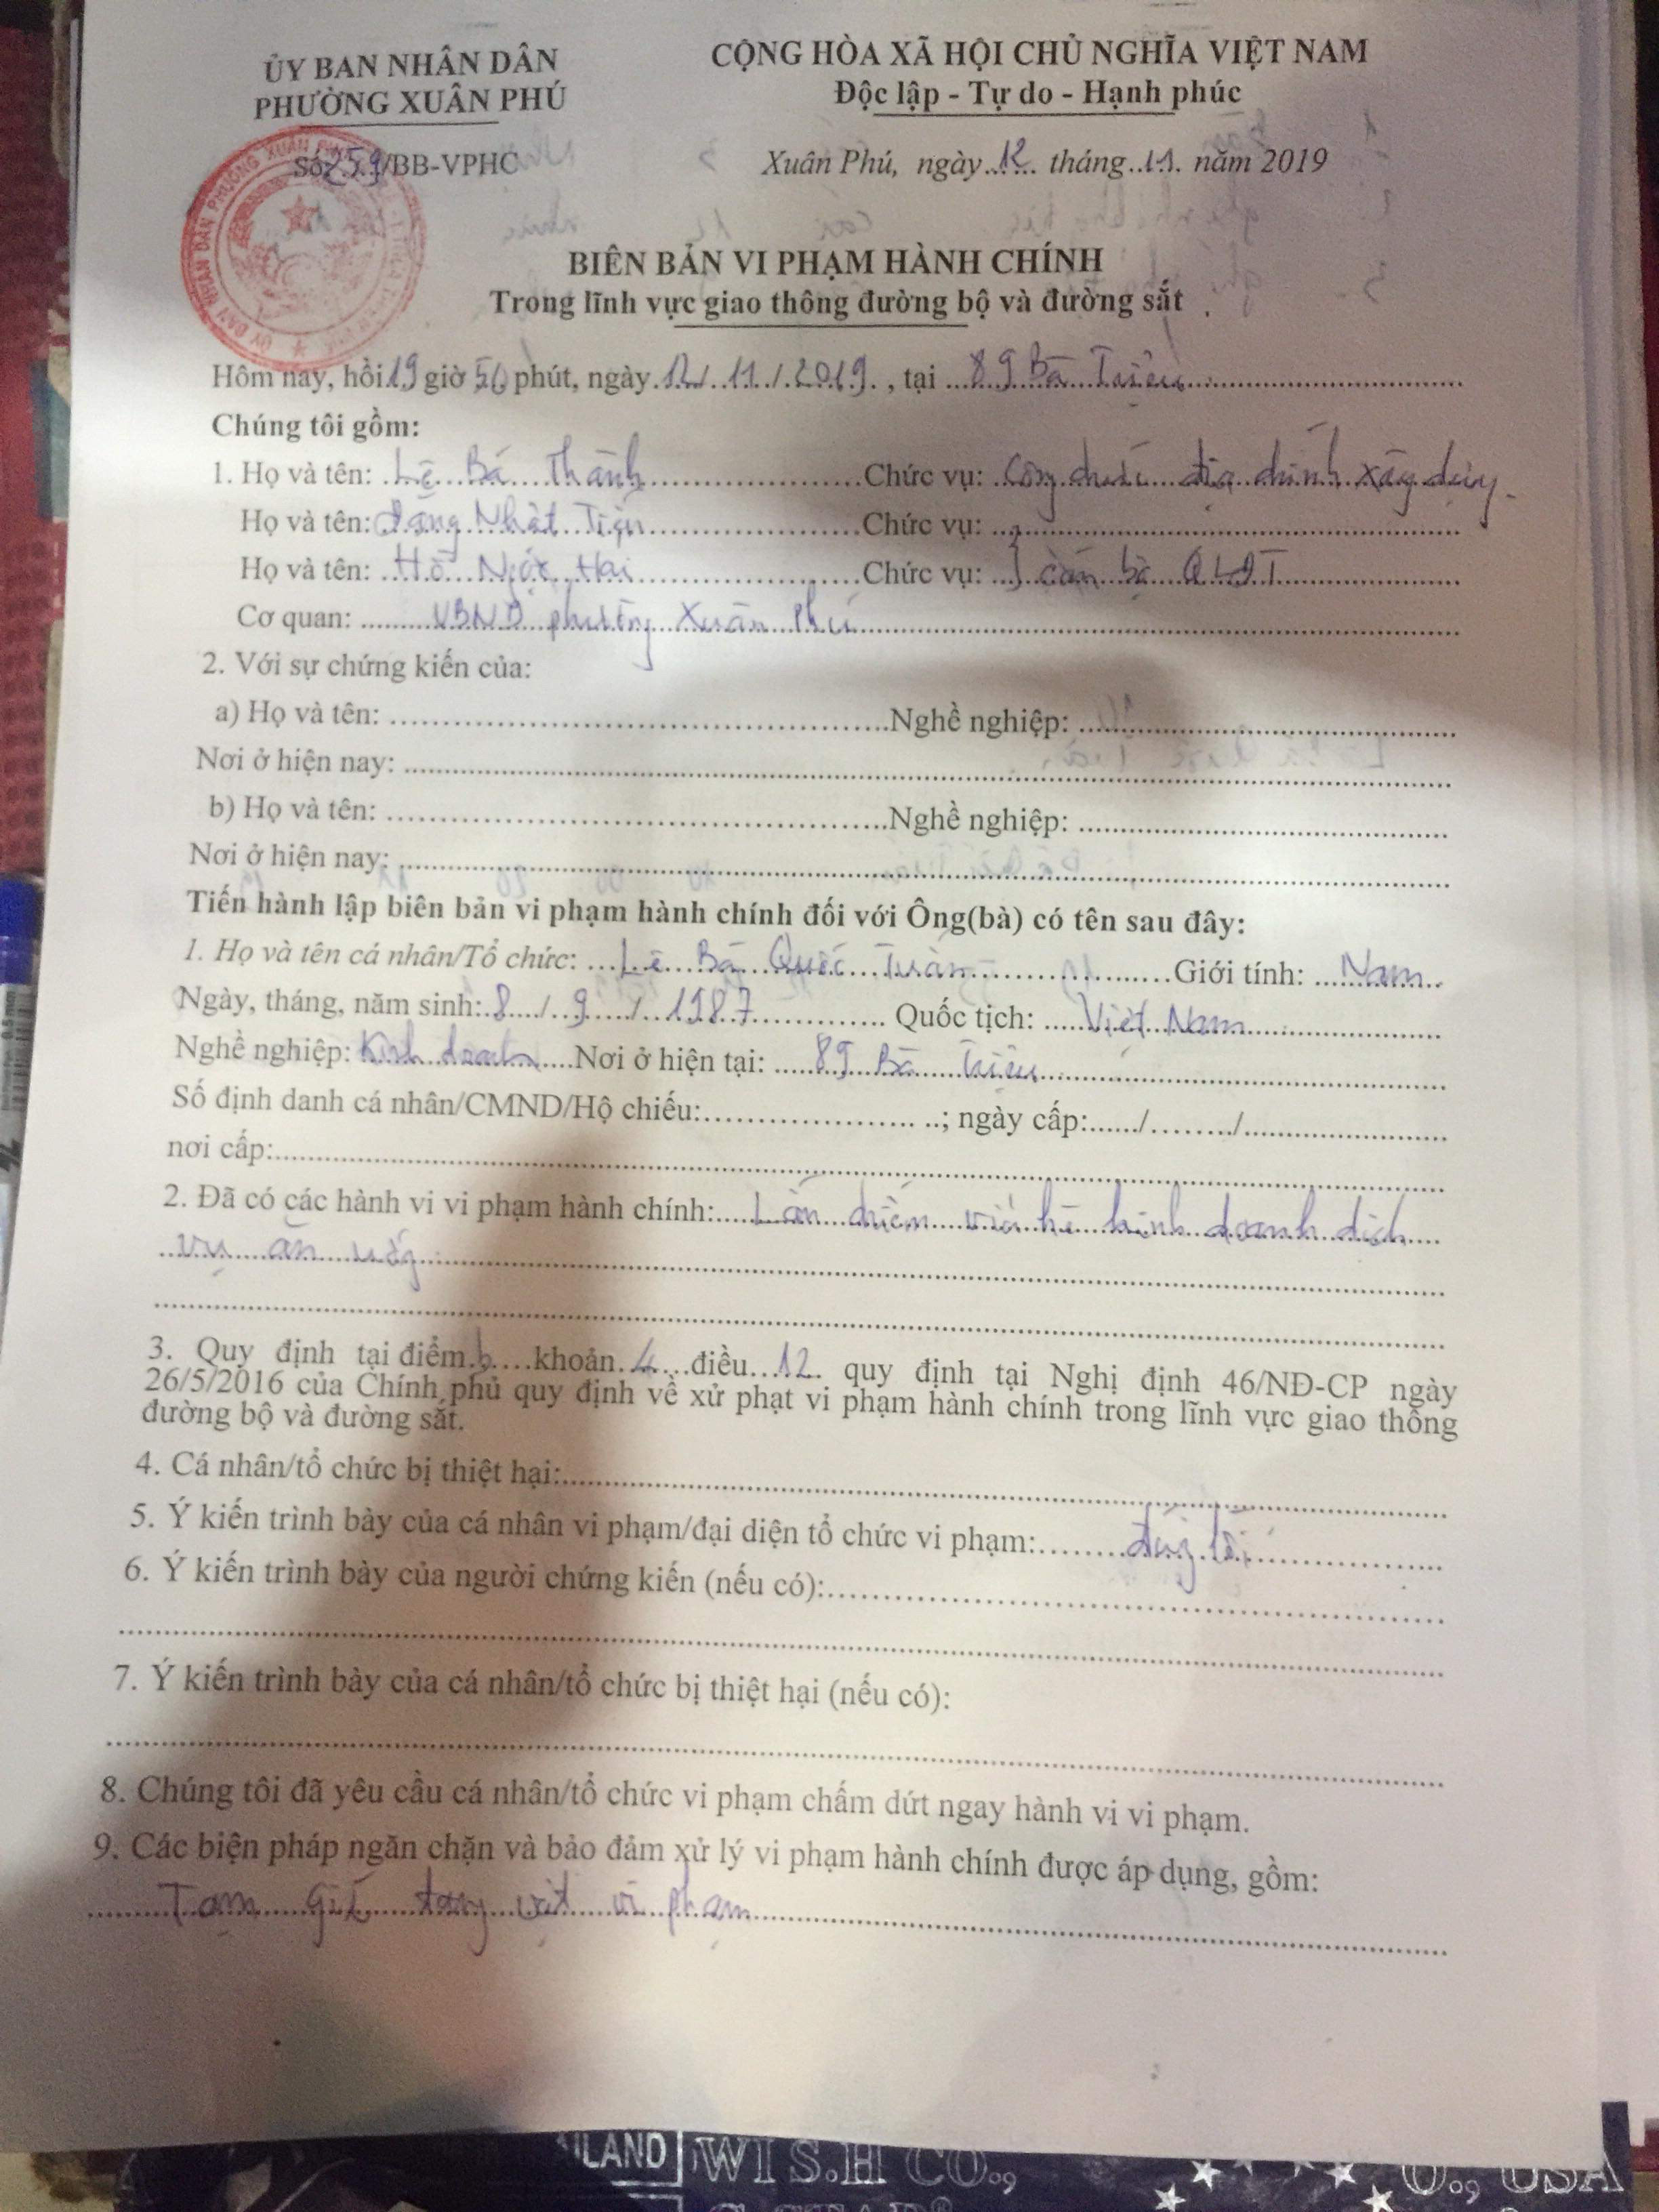 ỦY BAN NHÂN DÂN
PHƯỜNG XUÂN PHÚ
CỘNG HÒA XÃ HỘI CHỦ NGHĨA VIỆT NAM
Độc lập - Tự do - Hạnh phúc
Số 259/BB-VPHC
Xuân Phú, ngày 12 tháng 11 năm 2019
BIÊN BẢN VI PHẠM HÀNH CHÍNH
Trong lĩnh vực giao thông đường bộ và đường sắt
Hôm nay, hồi 19 giờ 50 phút, ngày 12/ 11 / 2019 , tại 89 Bà Triệu
Chúng tôi gồm:
1. Họ và tên: Lê Bá Thành Chức vụ: Công chức địa chính xây dựng
Họ và tên: Đặng Nhật Tiến Chức vụ:
Họ và tên: Hồ Ngọc Hai Chức vụ: cán bộ QLĐT
Cơ quan: UBND phường Xuân Phú
2. Với sự chứng kiến của:
a) Họ và tên: Nghề nghiệp:
Nơi ở hiện nay:
b) Họ và tên: Nghề nghiệp:
Nơi ở hiện nay:
Tiến hành lập biên bản vi phạm hành chính đối với Ông(bà) có tên sau đây:
1. Họ và tên cá nhân/Tổ chức: Lê Bá Quốc Tuấn Giới tính: Nam
Ngày, tháng, năm sinh: 8 / 9 / 1987 Quốc tịch: Việt Nam
Nghề nghiệp: Kinh doanh Nơi ở hiện tại: 89 Bà Triệu
Số định danh cá nhân/CMND/Hộ chiếu: ; ngày cấp: / /
nơi cấp:
2. Đã có các hành vi vi phạm hành chính: Lấn chiếm vỉa hè kinh doanh dịch
vụ ăn uống
3. Quy định tại điểm b khoản 4 điều 12 quy định tại Nghị định 46/NĐ-CP ngày
26/5/2016 của Chính phủ quy định về xử phạt vi phạm hành chính trong lĩnh vực giao thông
đường bộ và đường sắt.
4. Cá nhân/tổ chức bị thiệt hại:
5. Ý kiến trình bày của cá nhân vi phạm/đại diện tổ chức vi phạm: đúng lỗi
6. Ý kiến trình bày của người chứng kiến (nếu có):
7. Ý kiến trình bày của cá nhân/tổ chức bị thiệt hại (nếu có):
8. Chúng tôi đã yêu cầu cá nhân/tổ chức vi phạm chấm dứt ngay hành vi vi phạm.
9. Các biện pháp ngăn chặn và bảo đảm xử lý vi phạm hành chính được áp dụng, gồm:
Tạm giữ tang vật vi phạm
AILAND WIS.H CO., O., USA